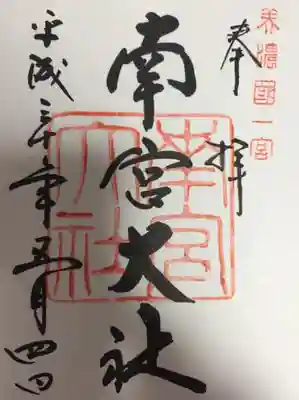 美濃國一宮
奉拝
南宮大社
南宮大社
平成三十年五月四日